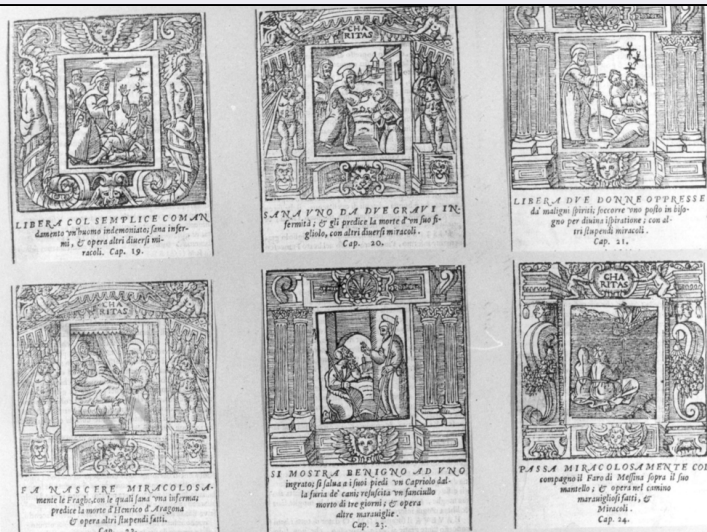 LIBERA COL SEMPLICE COMAN
damento vn'huomo indemoniato; sana infer-
mi, & opera altri diuersi mi-
racoli. Cap. 19.
CHA
RITAS
SANA VNO DA DVE GRAVI IN-
fermità; & gli predice la morte d'vn suo fi-
gliolo, con altri diuersi miracoli.
Cap. 20.
LIBERA DVE DONNE OPPRESSE
da' maligni spiriti; soccorre vno posto in biso-
gno per diuina ispiratione; con al-
tri stupendi miracoli.
Cap. 21.
CHA
RITAS
FA NASCERE MIRACOLOSA-
mente le Fraghe, con le quali sana vna inferma;
predice la morte d'Henrico d'Aragona
& opera altri stupendi fatti.
Cap. 22.
SI MOSTRA BENIGNO AD VNO
ingrato; si salua a i suoi piedi vn Capriolo dal-
la furia de' cani; resuscita vn fanciullo
morto di tre giorni; & opera
altre marauiglie.
Cap. 23.
CHA
RITAS
PASSA MIRACOLOSAMENTE COL
compagno il Faro di Messina sopra il suo
mantello; & opera nel camino
marauigliosi fatti, &
Miracoli.
Cap. 24.